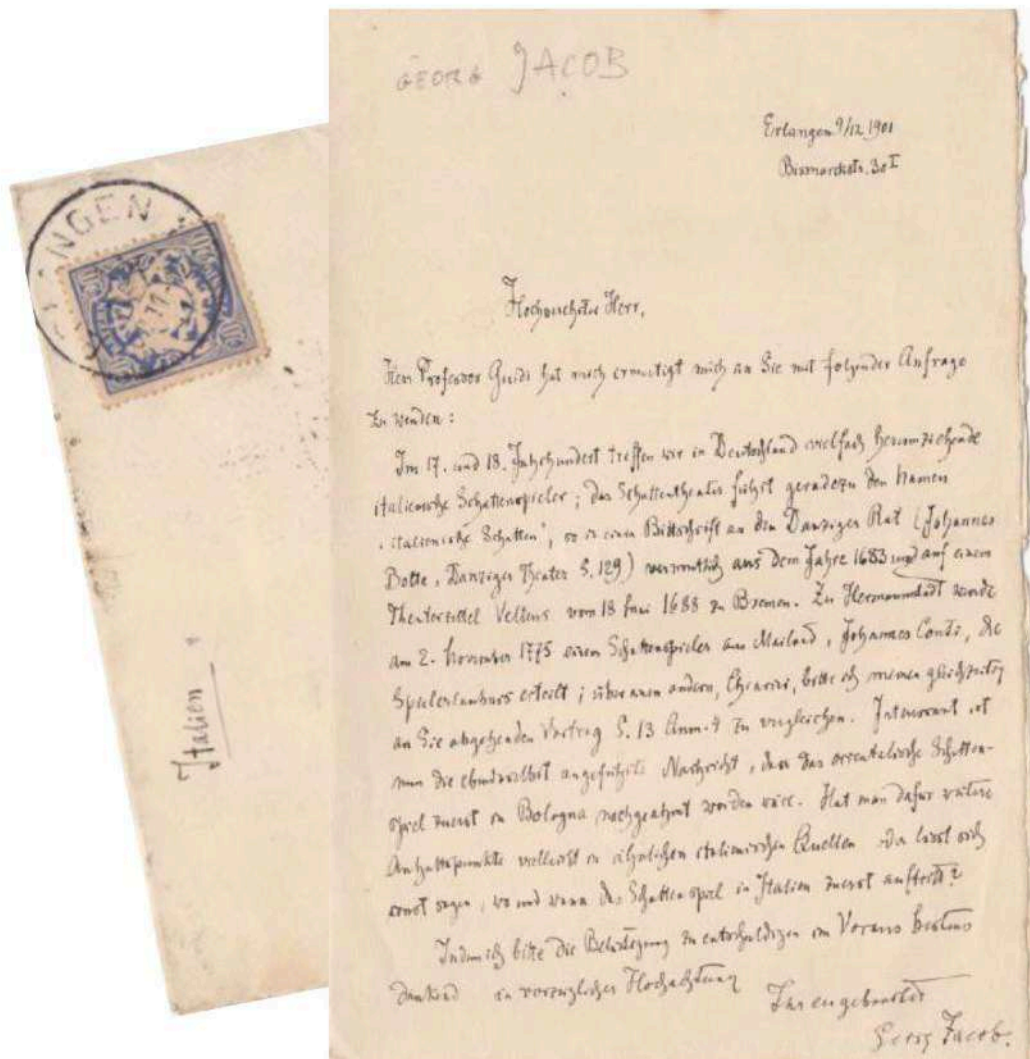 GEORG JACOB
Erlangen 9/12 1901
Bismarckstr. 30 I
Hochverehrter Herr,
Herr Professor Guidi hat mich ermutigt mich an Sie mit folgender Anfrage
zu wenden:
Im 17. und 18. Jahrhundert treffen wir in Deutschland vielfach herumziehende
italienische Schattenspieler; das Schattentheater führt geradezu den Namen
„italienische Schatten", so in einer Bittschrift an den Danziger Rat (Johannes
Bolte, Danziger Theater S. 129) vermutlich aus dem Jahre 1683 und auf einem
Theaterzettel Veltens vom 18 Juni 1688 zu Bremen. Zu Hermannstadt wurde
am 2. November 1775 einem Schattenspieler aus Mailand, Johannes Conti, die
Spielerlaubnis erteilt; über einen andern, Chiarini, bitte ich meinen gleichzeitig
an Sie abgehenden Vortrag S. 13 Anm. 4 zu vergleichen. Interessant ist
nun die ebendaselbst angeführte Nachricht, dass das orientalische Schatten-
spiel zuerst in Bologna nachgeahmt worden wäre. Hat man dafür weitere
Anhaltspunkte vielleicht in italienischen Quellen oder lässt sich
sonst sagen, wo und wann das Schattenspiel in Italien zuerst auftritt?
Indem ich bitte die Belästigung zu entschuldigen im Voraus bestens
dankend in vorzüglicher Hochachtung
Ihr ergebenster
Georg Jacob.
ERLANGEN
10
Italien